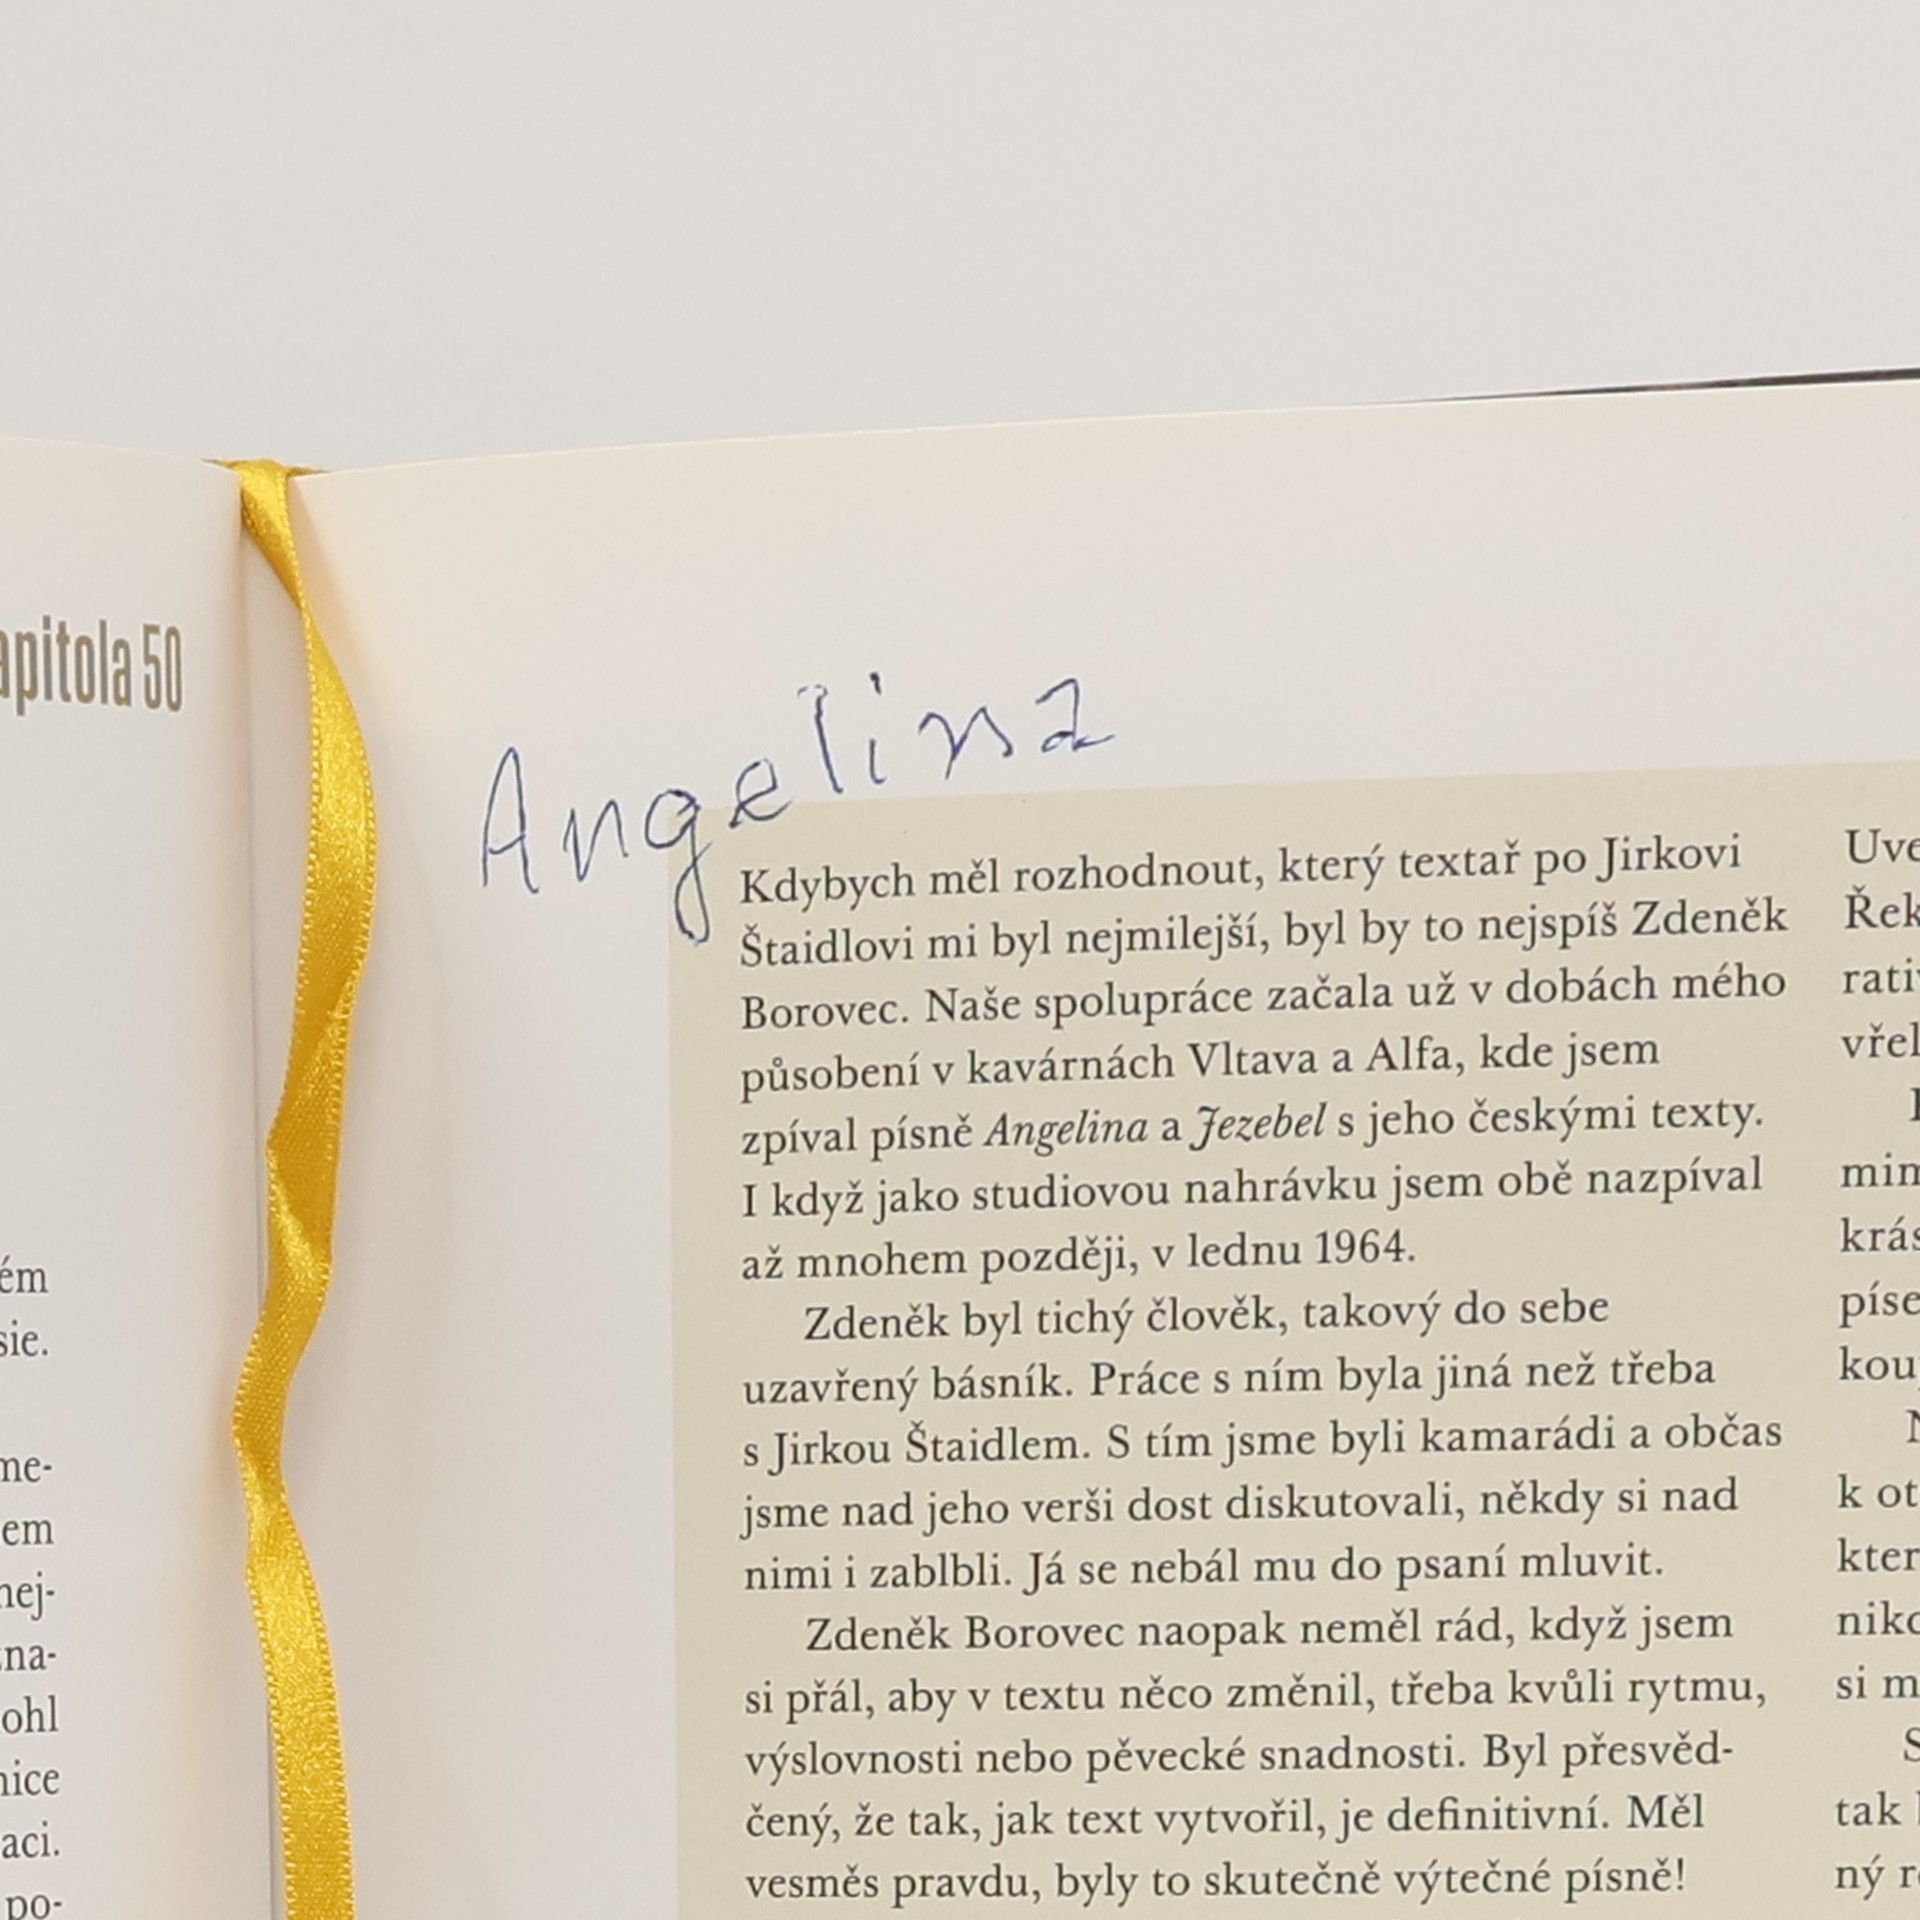 apitola 50
ém
sie.
me-
em
nej-
zna-
ohl
nice
aci.
po-
Angelina
Kdybych měl rozhodnout, který textař po Jirkovi
Štaidlovi mi byl nejmilejší, byl by to nejspíš Zdeněk
Borovec. Naše spolupráce začala už v dobách mého
působení v kavárnách Vltava a Alfa, kde jsem
zpíval písně Angelina a Jezebel s jeho českými texty.
I když jako studiovou nahrávku jsem obě nazpíval
až mnohem později, v lednu 1964.
Zdeněk byl tichý člověk, takový do sebe
uzavřený básník. Práce s ním byla jiná než třeba
s Jirkou Štaidlem. S tím jsme byli kamarádi a občas
jsme nad jeho verši dost diskutovali, někdy si nad
nimi i zablbli. Já se nebál mu do psaní mluvit.
Zdeněk Borovec naopak neměl rád, když jsem
si přál, aby v textu něco změnil, třeba kvůli rytmu,
výslovnosti nebo pěvecké snadnosti. Byl přesvěd-
čený, že tak, jak text vytvořil, je definitivní. Měl
vesměs pravdu, byly to skutečně výtečné písně!
Uve
Řek
rativ
vřel
mim
krás
píse
kou
N
k ot
kter
niko
si m
S
tak
ný r